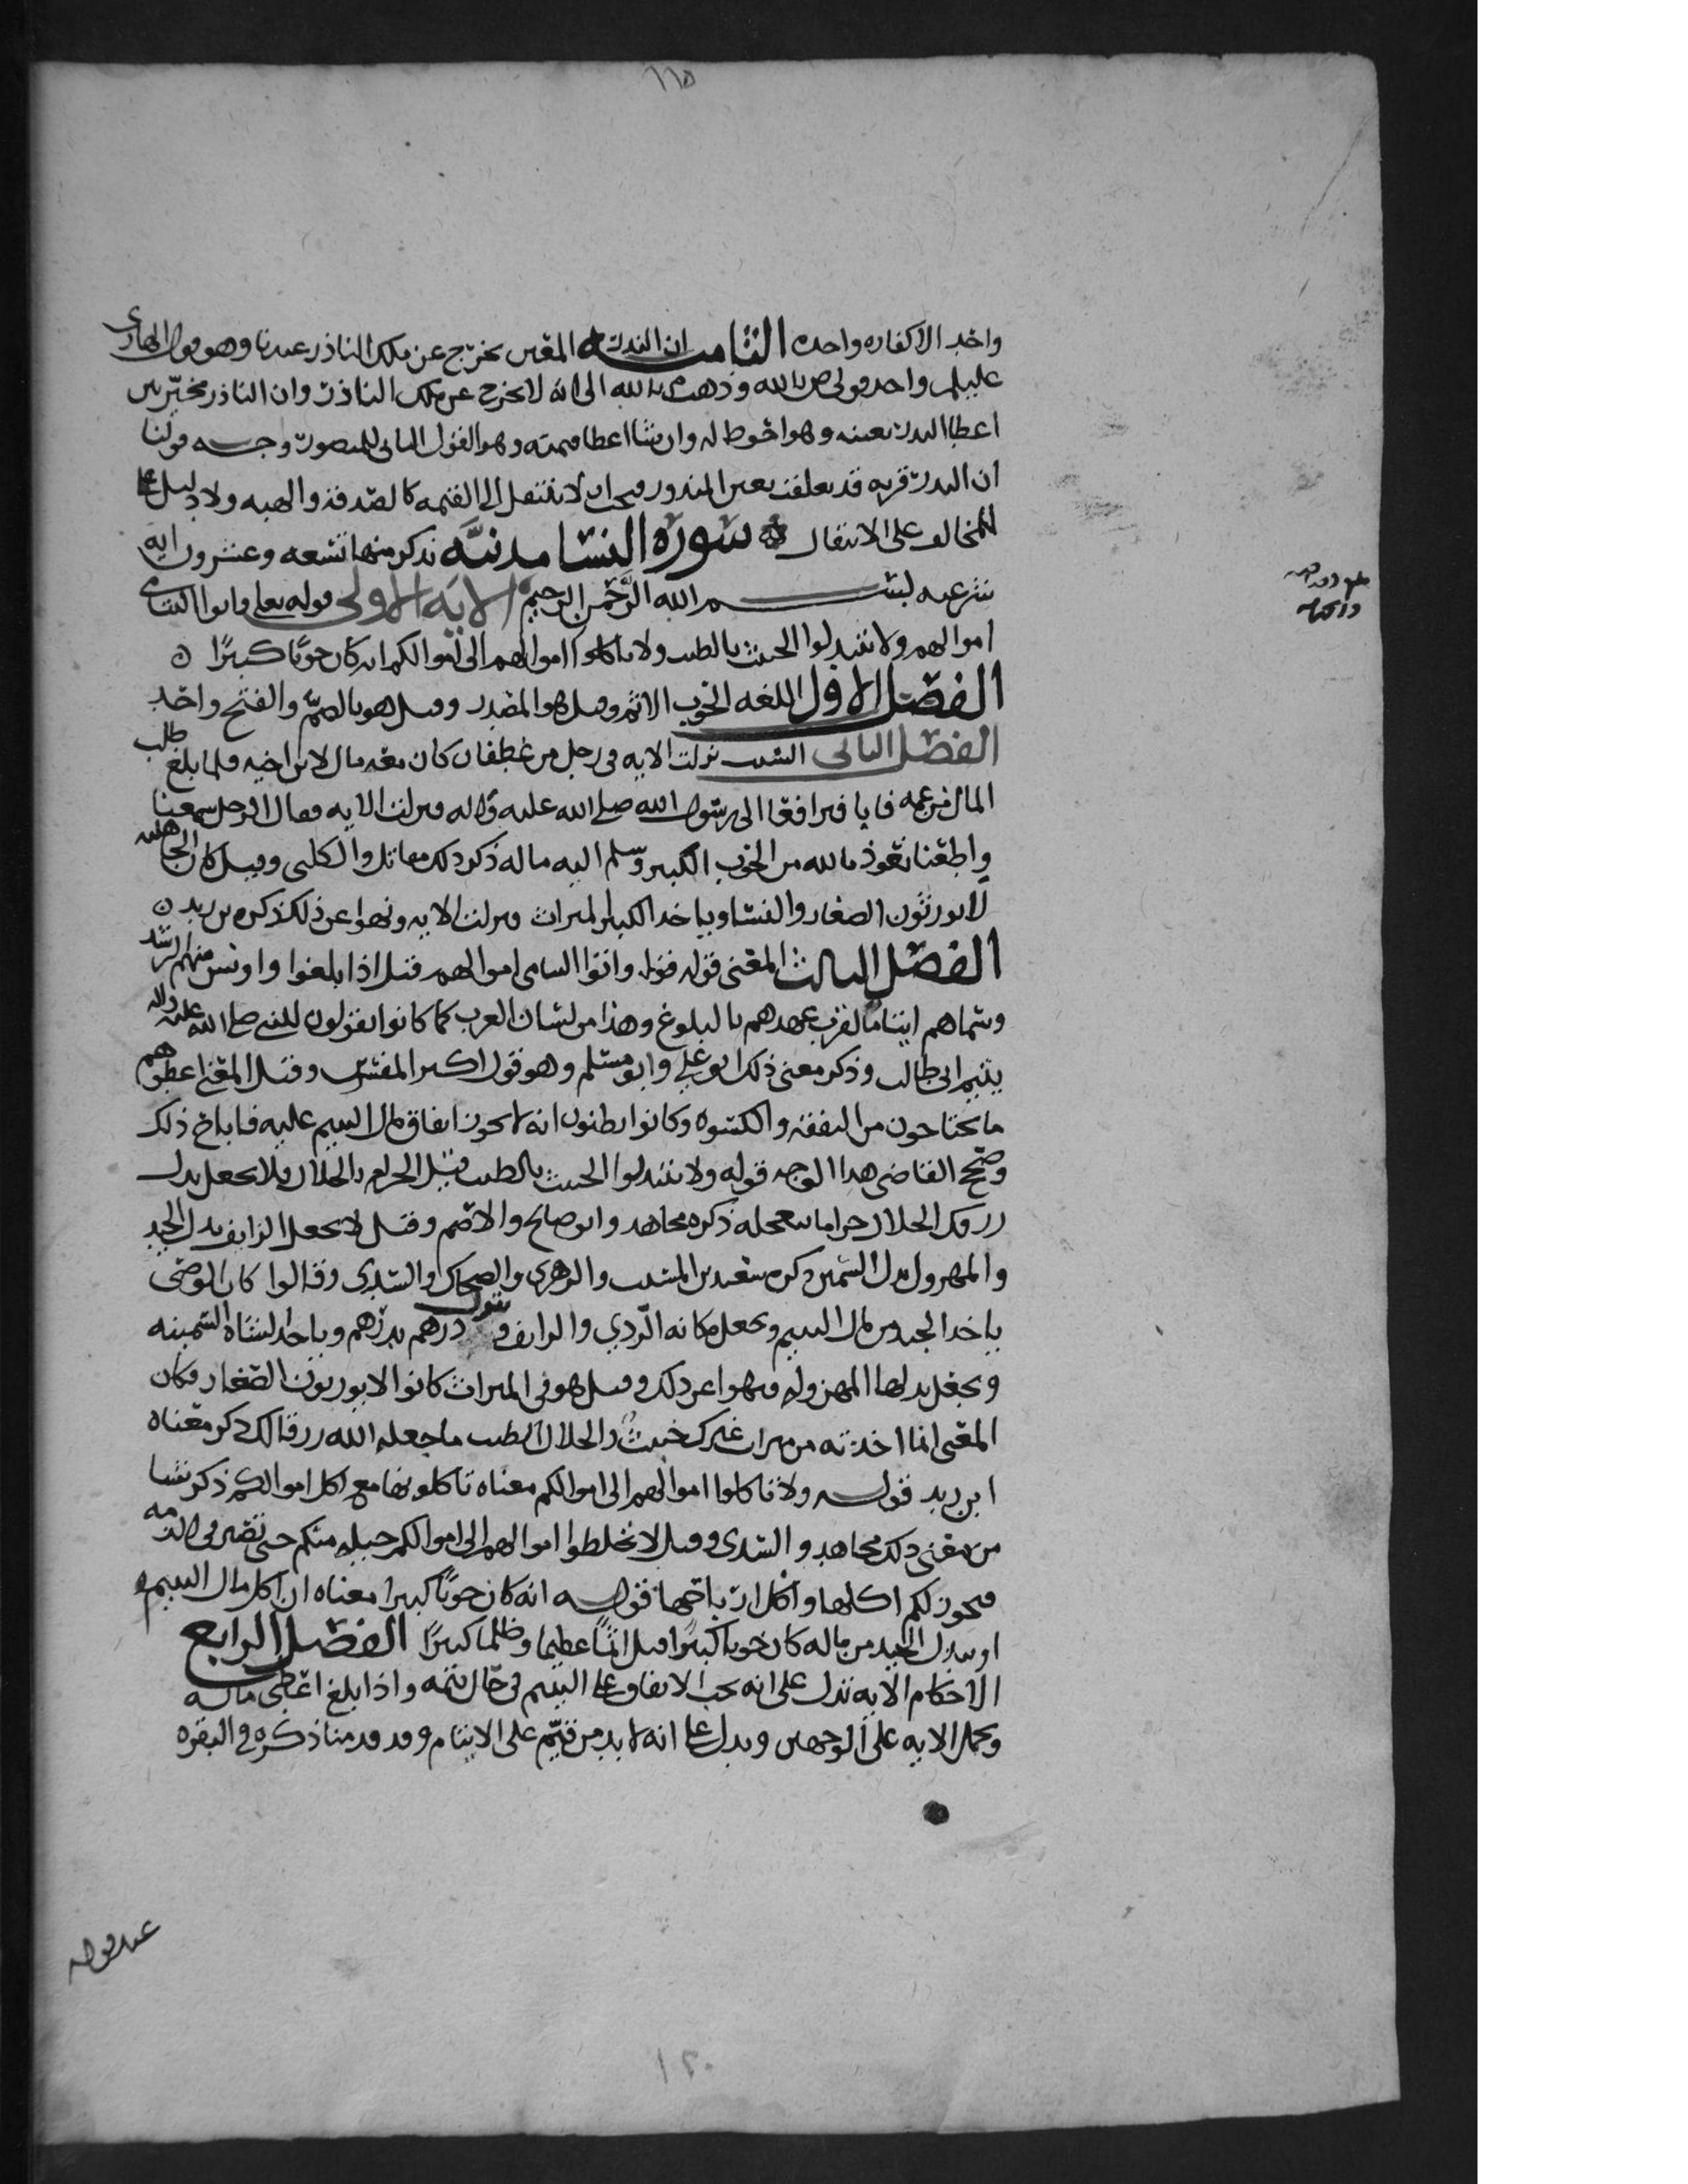 ١١٥
واحد الا كفاره واحده الثامنه ان النذر المعين يخرج عن ملك الناذر عندنا وهو قول الهادي
عليلم واحد قولي ص بالله وذهب م بالله الى انه لا يخرج عن ملك الناذر وان الناذر مخير بين
اعطا النذر بعينه وهو احوط له وان شا اعطا قيمته وهو القول الثاني للمنصور وجه قولنا
ان النذر قربه قد تعلقت بعين المنذور فيجب ان لا ينتقل الى القيمه كالصدقه والهبه ولا دليل
للمخالف على الانتقال سورة النسا مدنيه نذكر منها تسعه وعشرون ايه
شرعيه بسم الله الرحمن الرحيم الايه الاولى قوله تعلى واتوا اليتامى
اموالهم ولا تتبدلوا الخبيث بالطيب ولا تاكلوا اموالهم الى اموالكم انه كان حوبا كبيرا ن
الفصل الاول اللغه الحوب الاثم وقيل هو المصدر وقيل هو بالضم والفتح واحد
الفصل الثاني السبب نزلت الايه في رجل من غطفان كان معه مال لابن اخيه فلما بلغ طلب
المال من عمه فابا فترافعا الى رسول الله صلى الله عليه واله فنزلت الايه فقال الرجل سمعنا
واطعنا نعوذ بالله من الحوب الكبير وسلم اليه ماله ذكر ذلك مقاتل والكلبي وقيل كان الجاهليه
لا يورثون الصغار والنسا وياخذ الكبير الميراث فنزلت الايه ونهوا عن ذلك ذكره بن زيد ن
الفصل الثالث المعنى قوله قوله واتوا اليتامى اموالهم قيل اذا بلغوا واونس منهم الرشد
وسماهم ايتاما لقرب عهدهم بالبلوغ وهذا من لسان العرب كما كانوا يقولون للنبي صلى الله عليه واله
يتيم ابي طالب وذكر معنى ذلك ابو علي وابو مسلم وهو قول اكثر المفسرين وقيل المعنى اعطوهم
ما يحتاجون من النفقه والكسوه وكانوا يظنون انه لا يجوز انفاق مال اليتيم عليه فاباح ذلك
وصحح القاضي هذا الوجه قوله ولا تتبدلوا الخبيث بالطيب قيل الحرام بالحلال فلا يجعل بدل
رزقك الحلال حراما تتعجله ذكره مجاهد وابو صالح والاصم وقيل لا يجعل الزايف بدل الجيد
والمهزول بدل السمين ذكره سعيد بن المسيب والزهري والضحاك والسدي وقالوا كان الوصي
ياخذ الجيد من مال اليتيم ويجعل مكانه الردي والزايف ويقول درهم بدرهم وياخذ الشاه السمينه
ويجعل بدلها المهزوله فنهوا عن ذلك وقيل هو في الميراث كانوا لا يورثون الصغار فكان
المعنى انما اخذته من ميراث غيرك خبيث والحلال الطيب ما جعله الله رزقا لك ذكر معناه
ابن زيد قوله ولا تاكلوا اموالهم الى اموالكم معناه تاكلونها مع اكل اموالكم ذكر شيا
من معنى ذلك مجاهد والسدي وقيل لا تخلطوا اموالهم الى اموالكم حيله منكم حتى تصير في الذمه
فيجوز لكم اكلها واكل ارباحها قوله انه كان حوبا كبيرا معناه ان اكل مال اليتيم
او يبدل الجيد من ماله كان حوبا كبيرا قيل اثما عظيما وظلما كبيرا الفصل الرابع
الاحكام الايه تدل على انه يجب الانفاق على اليتيم في حال يتمه واذا بلغ اعطي ماله
ويحمل الايه على الوجهين ويدل على انه لا بد من قيم على الايتام وقد قدمنا ذكره في البقره
عند قوله
١٢٠